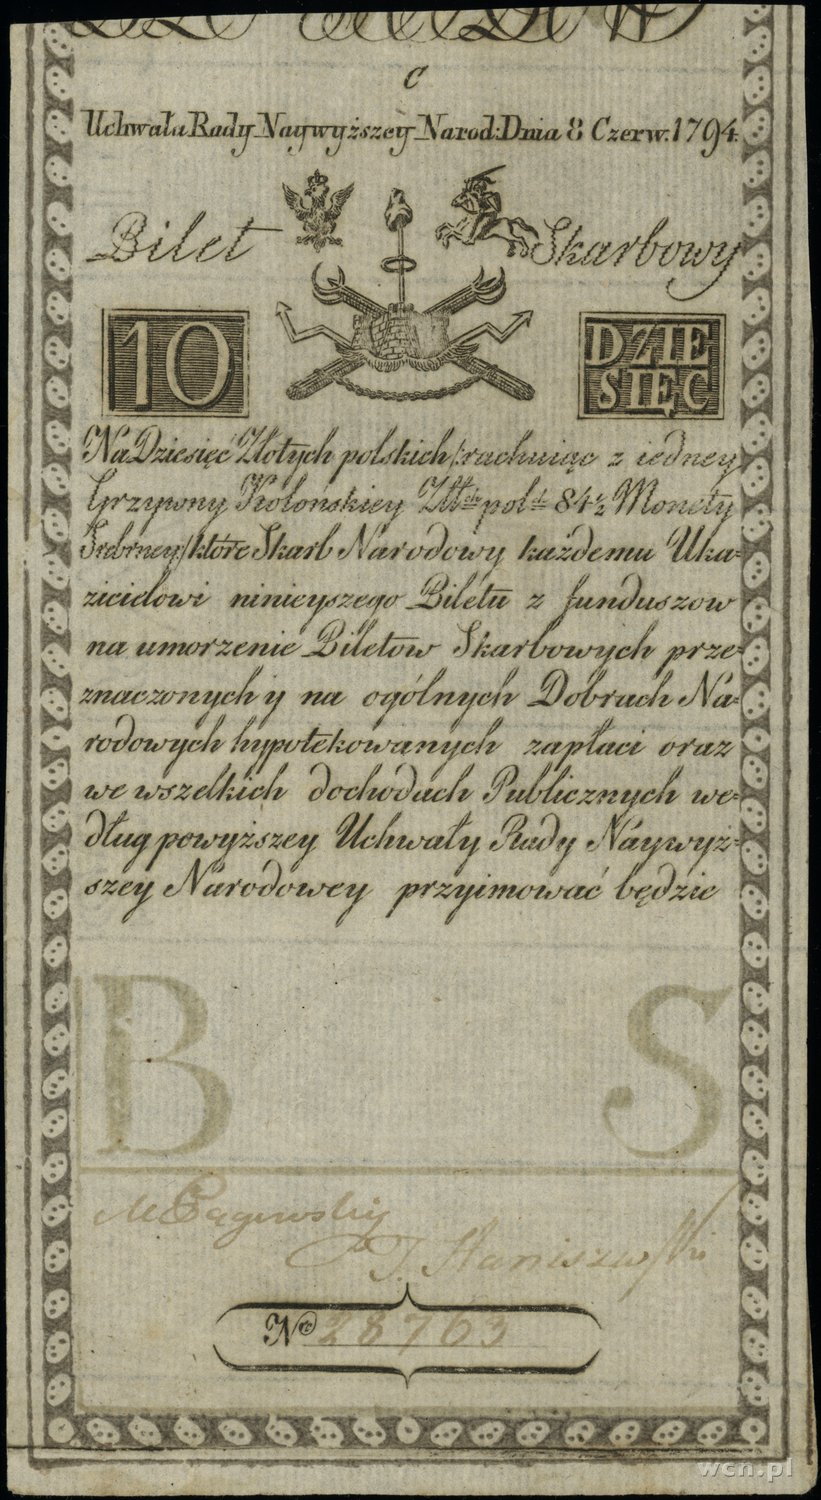 C
Uchwała Rady Naywyższey Narod: Dnia 8 Czerw. 1794.
Bilet Skarbowy
10
DZIE
SIĘC
Na Dziesięć Złotych polskich /:rachuiąc z iedney
Grzywny Kolonskiey Złł pol 84½ Monety
Srebrney/ które Skarb Narodowy każdemu Uka=
zicielowi ninieyszego Biletu z funduszow
na umorzenie Biletow Skarbowych prze=
znaczonych y na ogólnych Dobrach Na=
rodowych hypotekowanych zapłaci oraz
we wszelkich dochodach Publicznych we=
dług powyższey Uchwały Rady Naywyż=
szey Narodowey przyimować będzie
B S
M Pągowski
T. Staniszewski
Nro 28763
wcn.pl